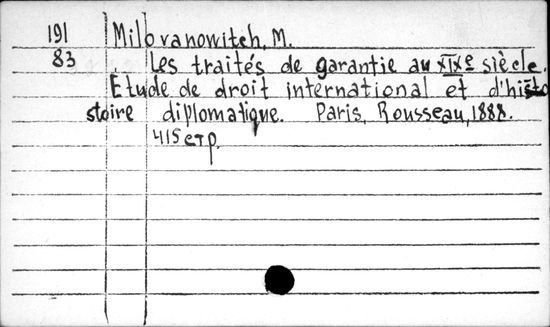 191 Milovanowitch, M.
83 Les traités de garantie au XIXe siècle.
Etude de droit international et d'histo
stoire diplomatique. Paris, Rousseau, 1888.
415 стр.